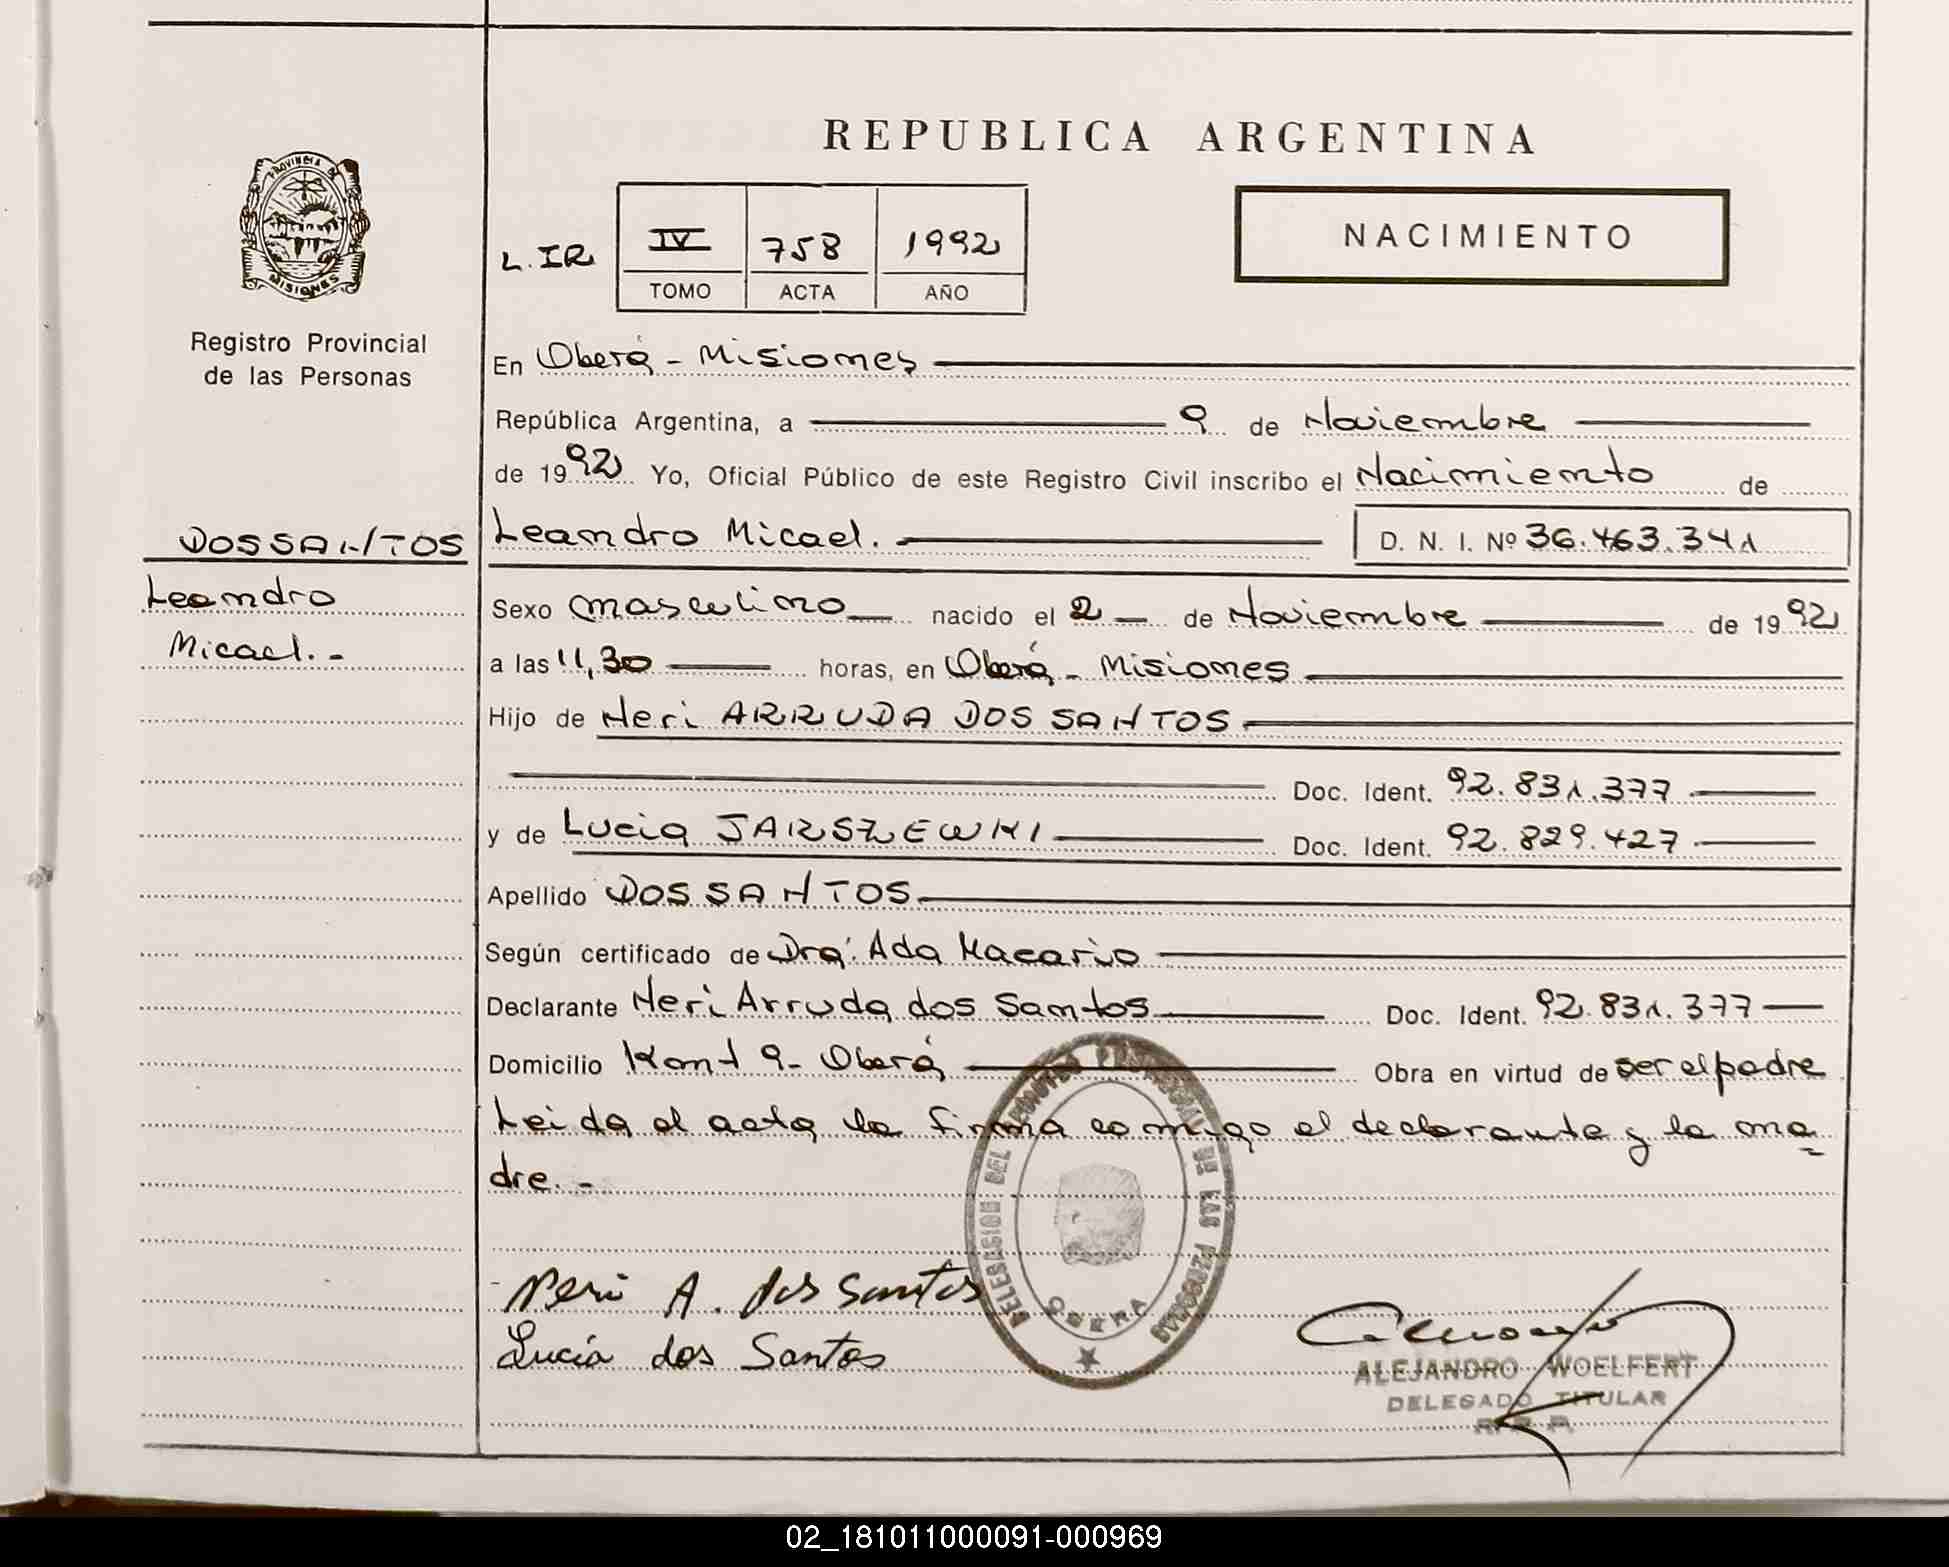 REPUBLICA ARGENTINA
PROVINCIA DE
MISIONES
Registro Provincial
de las Personas
L. IR
IV 758 1992
TOMO ACTA AÑO
NACIMIENTO
En Oberá - Misiones
República Argentina, a 9 de Noviembre
de 1992 Yo, Oficial Público de este Registro Civil inscribo el Nacimiento de
DOS SANTOS
Leandro
Micael. -
Leandro Micael. D. N. I. Nº 36.463.341
Sexo masculino nacido el 2 de Noviembre de 1992
a las 11,30 horas, en Oberá - Misiones
Hijo de Neri ARRUDA DOS SANTOS
Doc. Ident. 92.831.377
y de Lucia JARSZEWKI Doc. Ident. 92.829.427
Apellido DOS SANTOS
Según certificado de Dra. Ada Macario
Declarante Neri Arruda dos Santos Doc. Ident. 92.831.377
Domicilio Kant 9 - Oberá Obra en virtud de ser el padre
Leida el acta la firma comigo el declarante y la ma
dre. -
DELEGACION DEL REGISTRO PROVINCIAL DE LAS PERSONAS
OBERA
Neri A. dos Santos
Lucía dos Santos
ALEJANDRO WOELFERT
DELEGADO TITULAR
R. P. P.
02_181011000091-000969